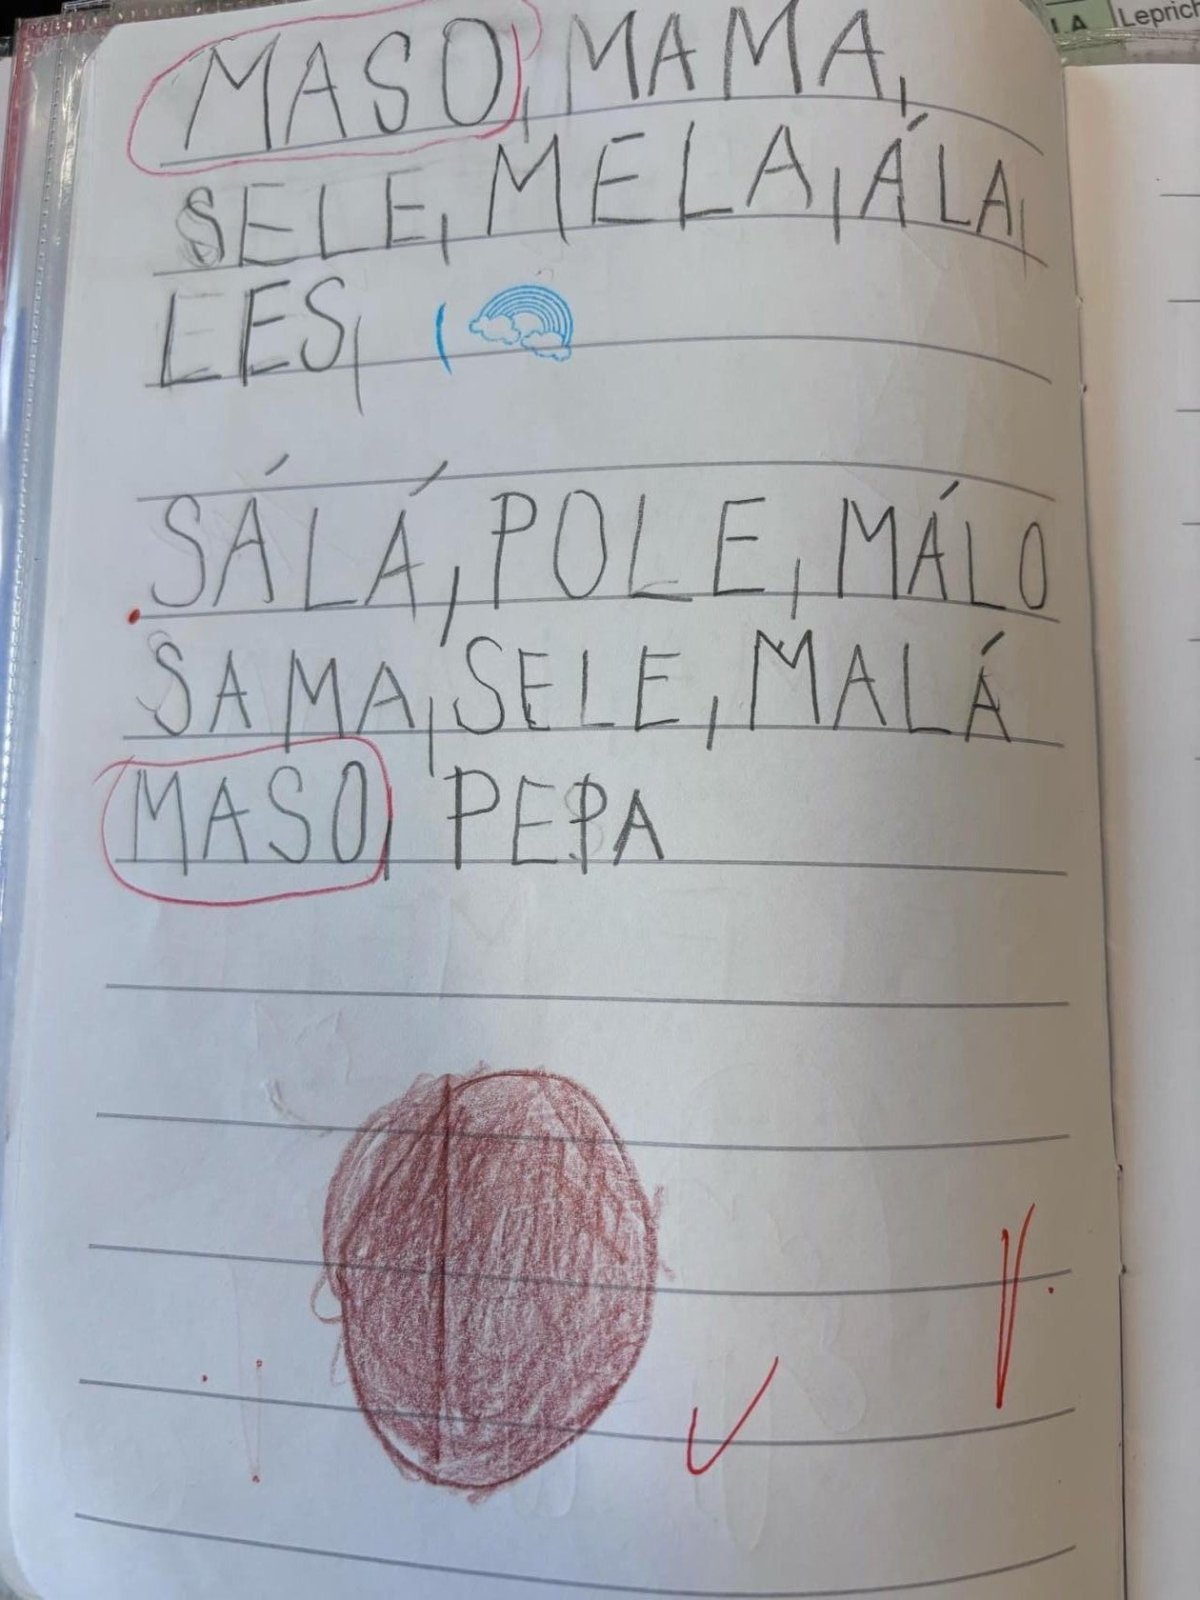 LA Leprich
MASO, MAMA,
SELE, MELA, ÁLA,
LES,
SÁLÁ, POLE, MÁLO
SAMA, SELE, MALÁ
MASO, PEPA